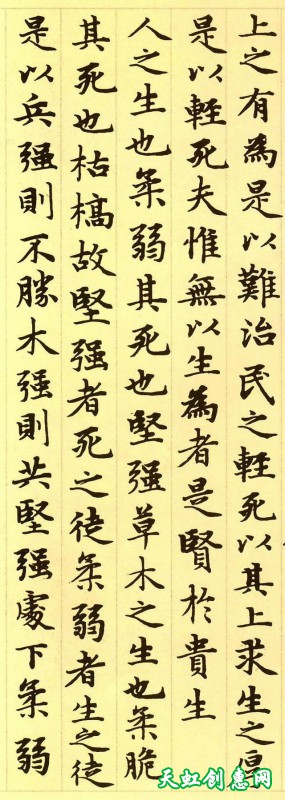 上之有為是以難治民之輕死以其上求生之厚
是以輕死夫惟無以生為者是賢於貴生
人之生也柔弱其死也堅强草木之生也柔脆
其死也枯槁故堅强者死之徒柔弱者生之徒
是以兵强則不勝木强則共堅强處下柔弱
天虹创意网